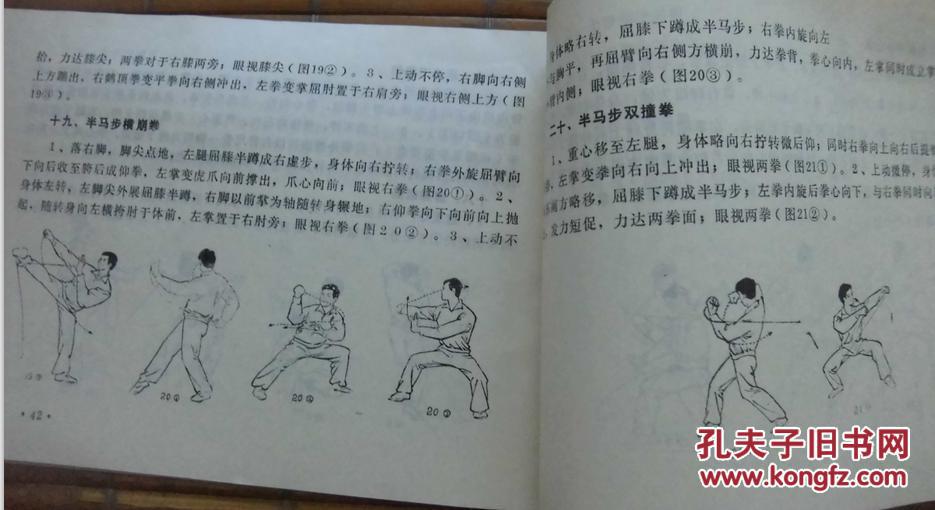 抬，力达膝尖；两拳对于右膝两旁；眼视膝尖（图19②）。3、上动不停，右脚向右侧
上方踹出，右鹤顶拳变平拳向右侧冲出，左拳变掌屈肘置于右肩旁；眼视右侧上方（图
19③）。
十九、半马步横崩拳
1、落右脚，脚尖点地，左腿屈膝半蹲成右虚步，身体向右拧转；右拳外旋屈臂向
下向后收至胯后成仰拳，左掌变虎爪向前撑出，爪心向前；眼视右拳（图20①）。2、
身体左转，左脚尖外展屈膝半蹲，右脚以前掌为轴随转身辗地；右仰拳向下向前向上抛
起，随转身向左横挎肘于体前，左掌置于右肘旁；眼视右拳（图20②）。3、上动不
20
20
20
·42·
身体略右转，屈膝下蹲成半马步；右拳内旋向左
与胸平，再屈臂向右侧方横崩，力达拳背，拳心向内，左掌同时成立掌
臂内侧；眼视右拳（图20③）。
二十、半马步双撞拳
1、重心移至左腿，身体略向右拧转微后仰；同时右拳向上向右后提
，左掌变拳向右向上冲出；眼视两拳（图21①）。2、上动微停，身
侧方略移，屈膝下蹲成半马步；左拳内旋后拳心向下，与右拳同时向
，发力短促，力达两拳面；眼视两拳（图21②）。
孔夫子旧书网
www.kongfz.com